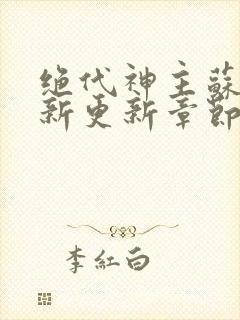 绝代神主蘇
新更新章節
李紅白